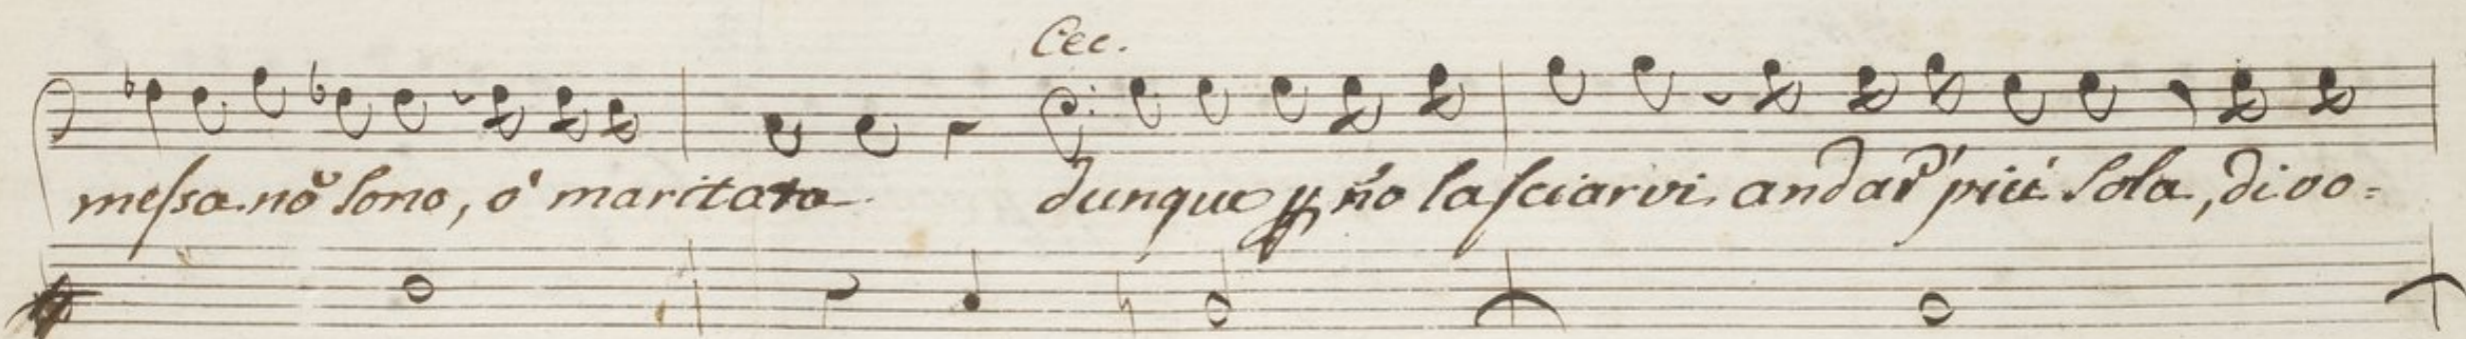 Cec.
messa nõ sono, ò maritata. dunque p ño lasciarvi andar più sola, di vo=